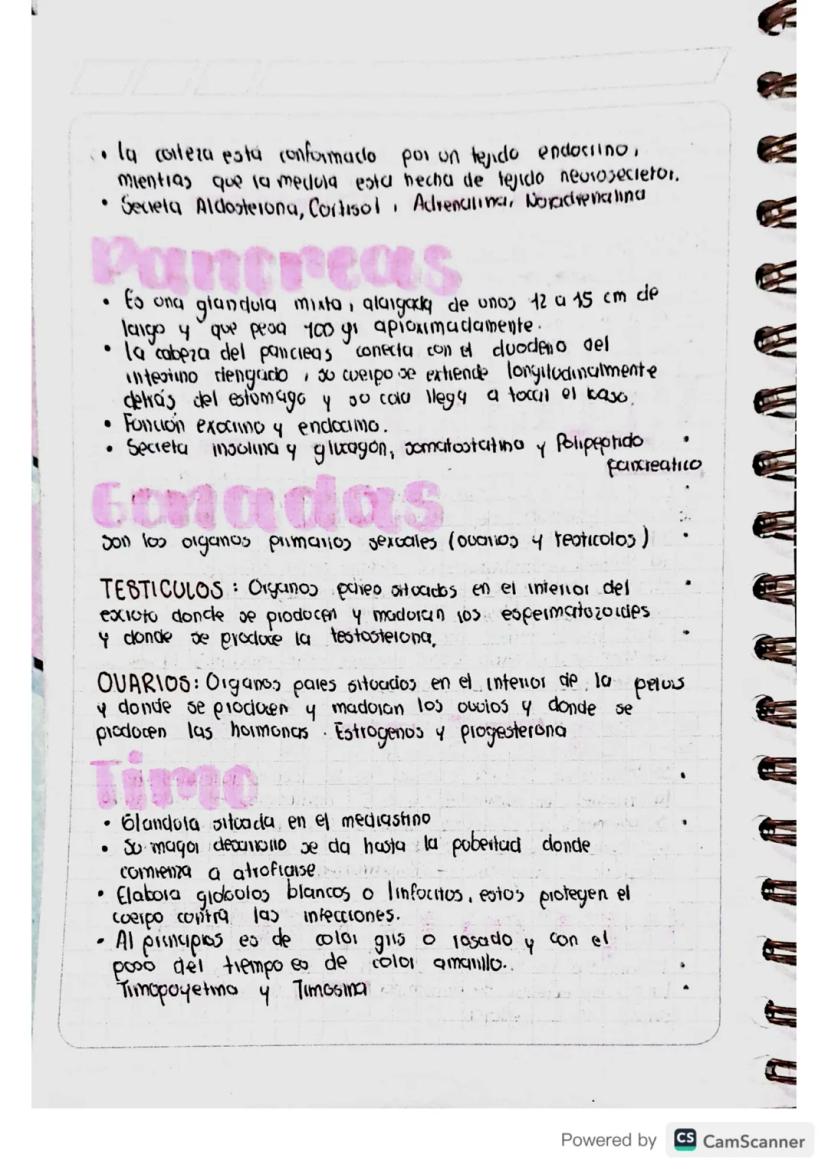 • la corteza esta conformado por un tejido endocrino,
mientras que la medula esta hecha de tejido neurosecretor.
• Secreta Aldosterona, Cortisol, Adrenalina, Noradrenalina
Pancreas
• Es una glandula mixta, alargada de unos 12 a 15 cm de
largo y que pesa 100 gr aproximadamente.
• la cabeza del pancreas conecta con el duodeno del
intestino delgado, su cuerpo se extiende longitudinalmente
detrás del estomago y su cola llega a tocar el baso.
• Función exocrino y endocrino.
• Secreta insolina y glucagón, somatostatina y Polipeptido
pancreatico
Gonadas
Son los organos primarios sexuales (ovarios y testiculos)
TESTICULOS: Organos pareo situados en el interior del
escroto donde se producen y maduran los espermatozoides
y donde se produce la testosterona,
OVARIOS: Organos pares situados en el interior de la pelvis
y donde se producen y maduran los ovulos y donde se
producen las hormonas. Estrogenos y progesterona
Timo
• Glandula situada en el mediastino
• Su mayor desarrollo se da hasta la pubertad donde
comienza a atrofiarse
• Elabora globulos blancos o linfocitos, estos protegen el
cuerpo contra las infecciones.
• Al principios es de color gris o rosado y con el
paso del tiempo es de color amarillo.
Timopoyetina y Timosina
Powered by CS CamScanner